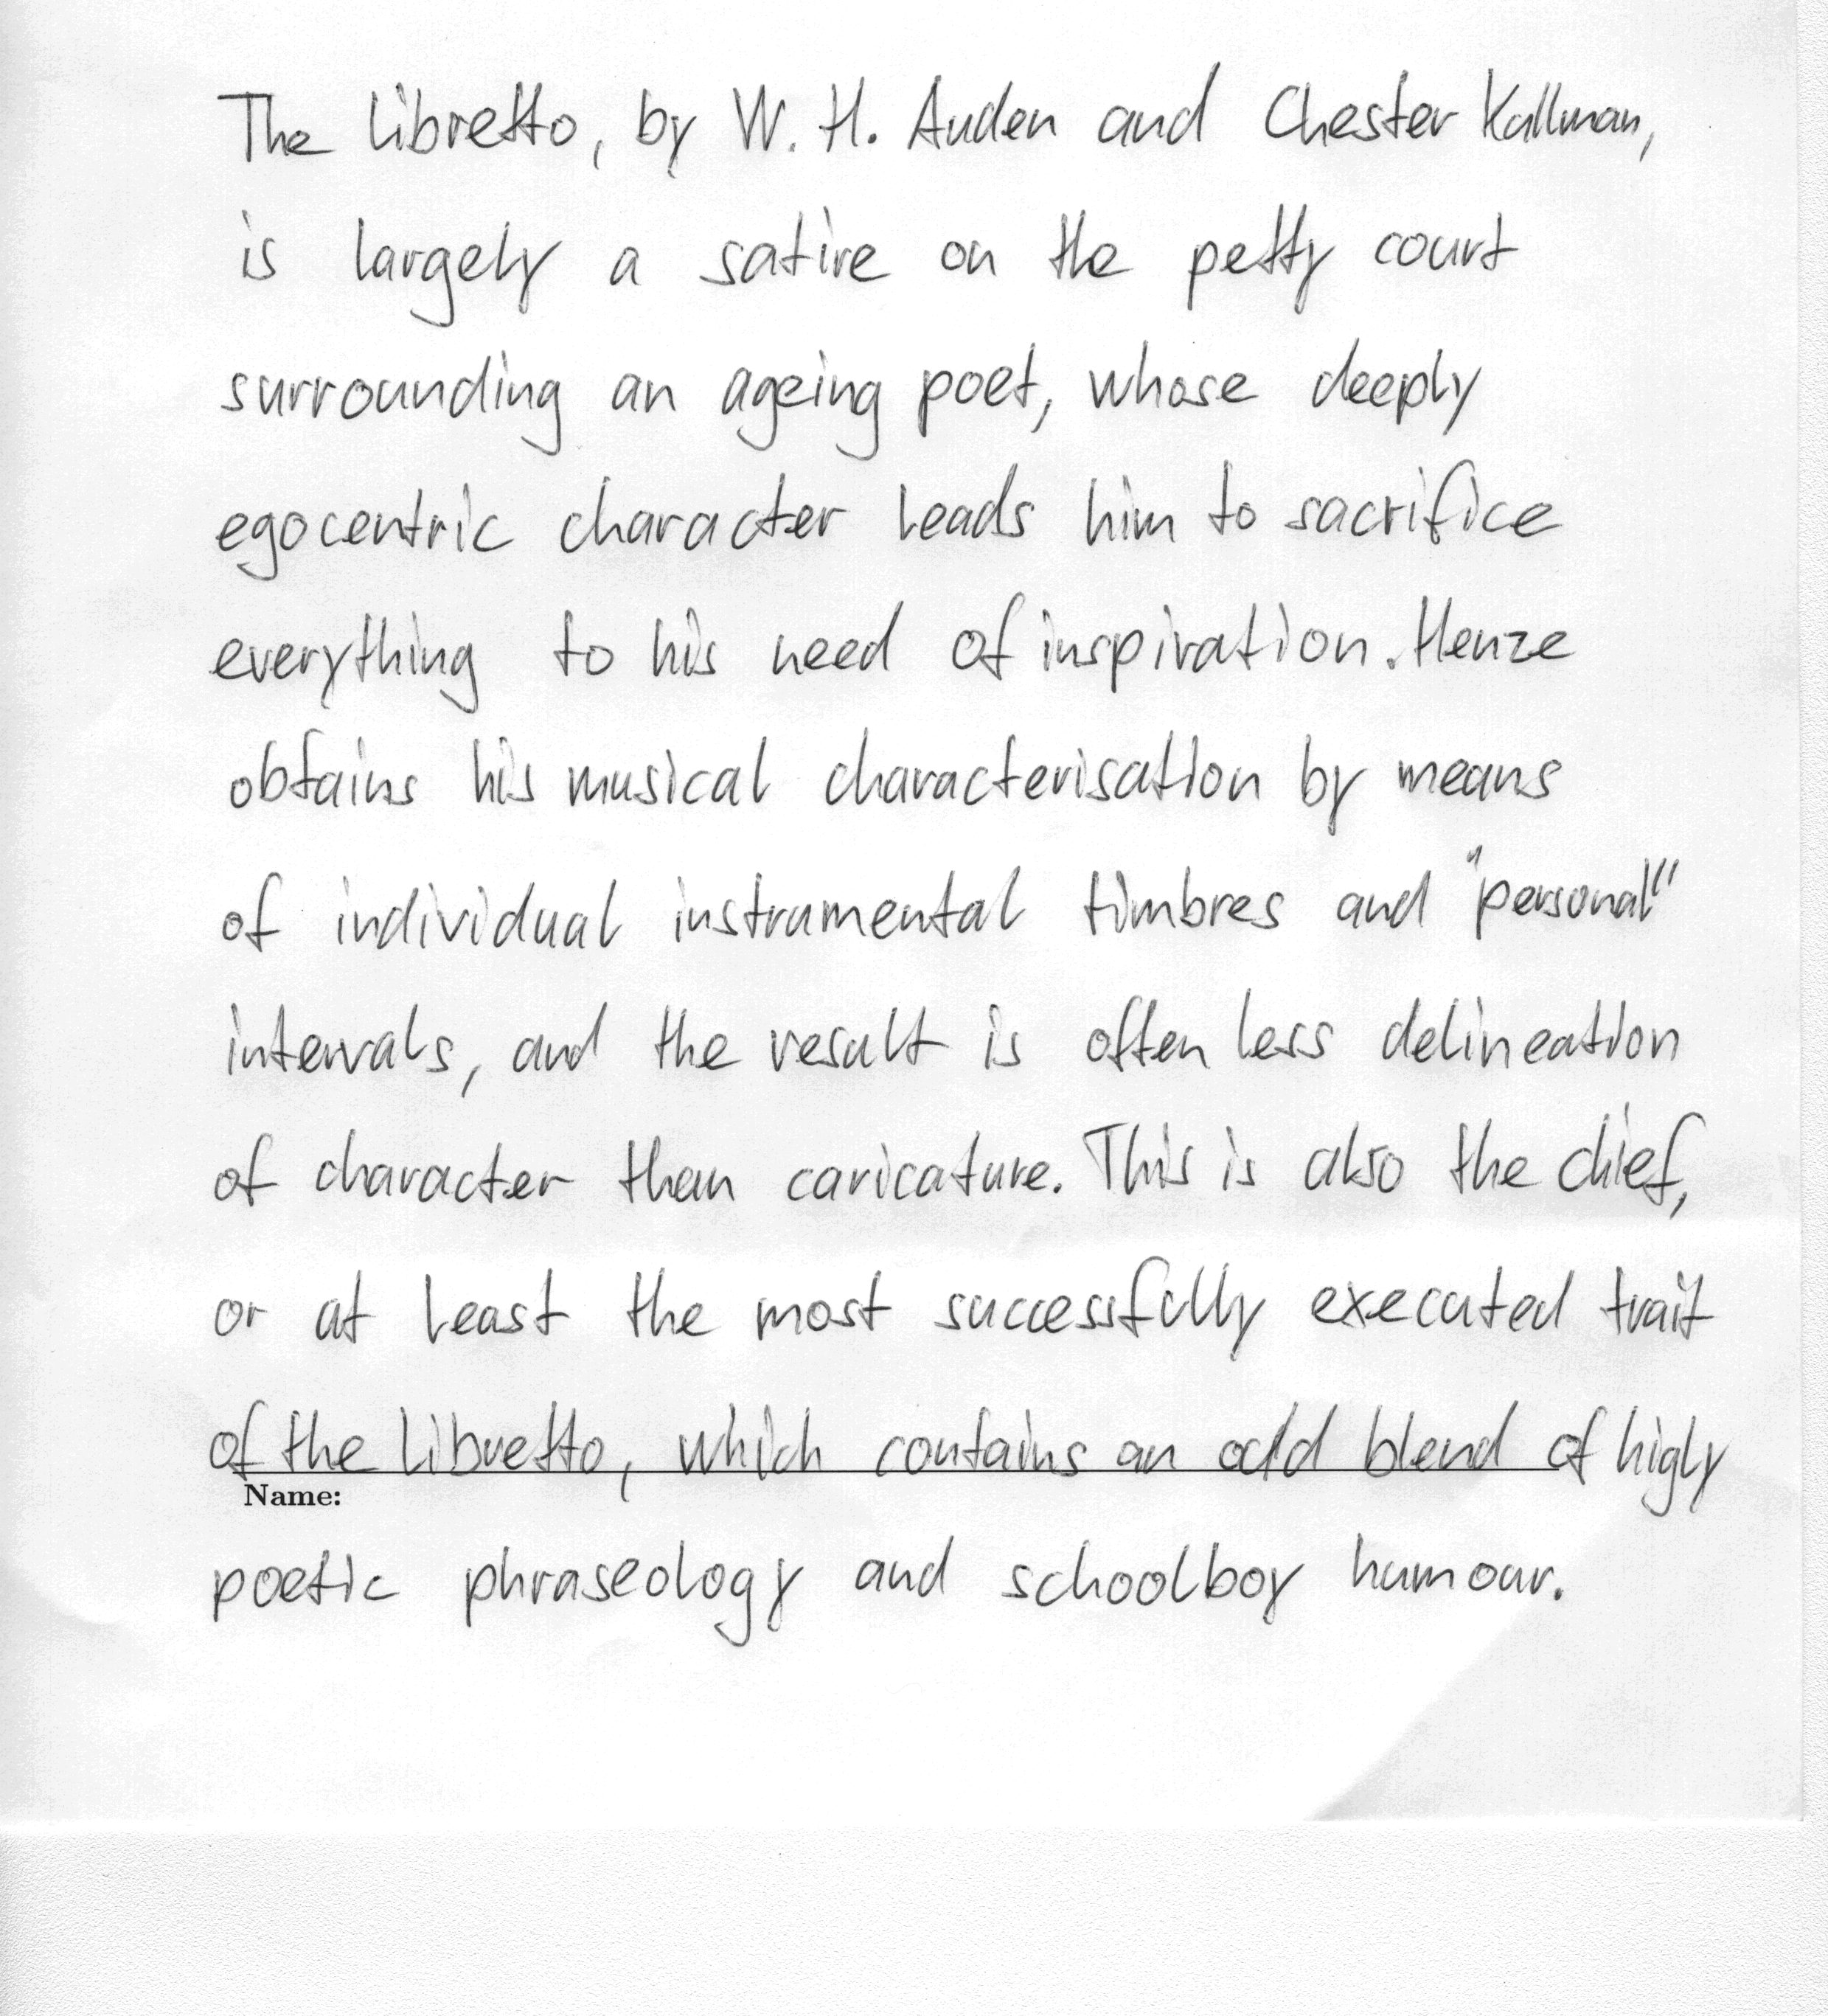 The libretto, by W. H. Auden and Chester Kallman,
is largely a satire on the petty court
surrounding an ageing poet, whose deeply
egocentric character leads him to sacrifice
everything to his need of inspiration. Henze
obtains his musical characterisation by means
of individual instrumental timbres and "personal"
intervals, and the result is often less delineation
of character than caricature. This is also the chief,
or at least the most successfully executed trait
of the libretto, which contains an odd blend of higly
Name:
poetic phraseology and schoolboy humour.